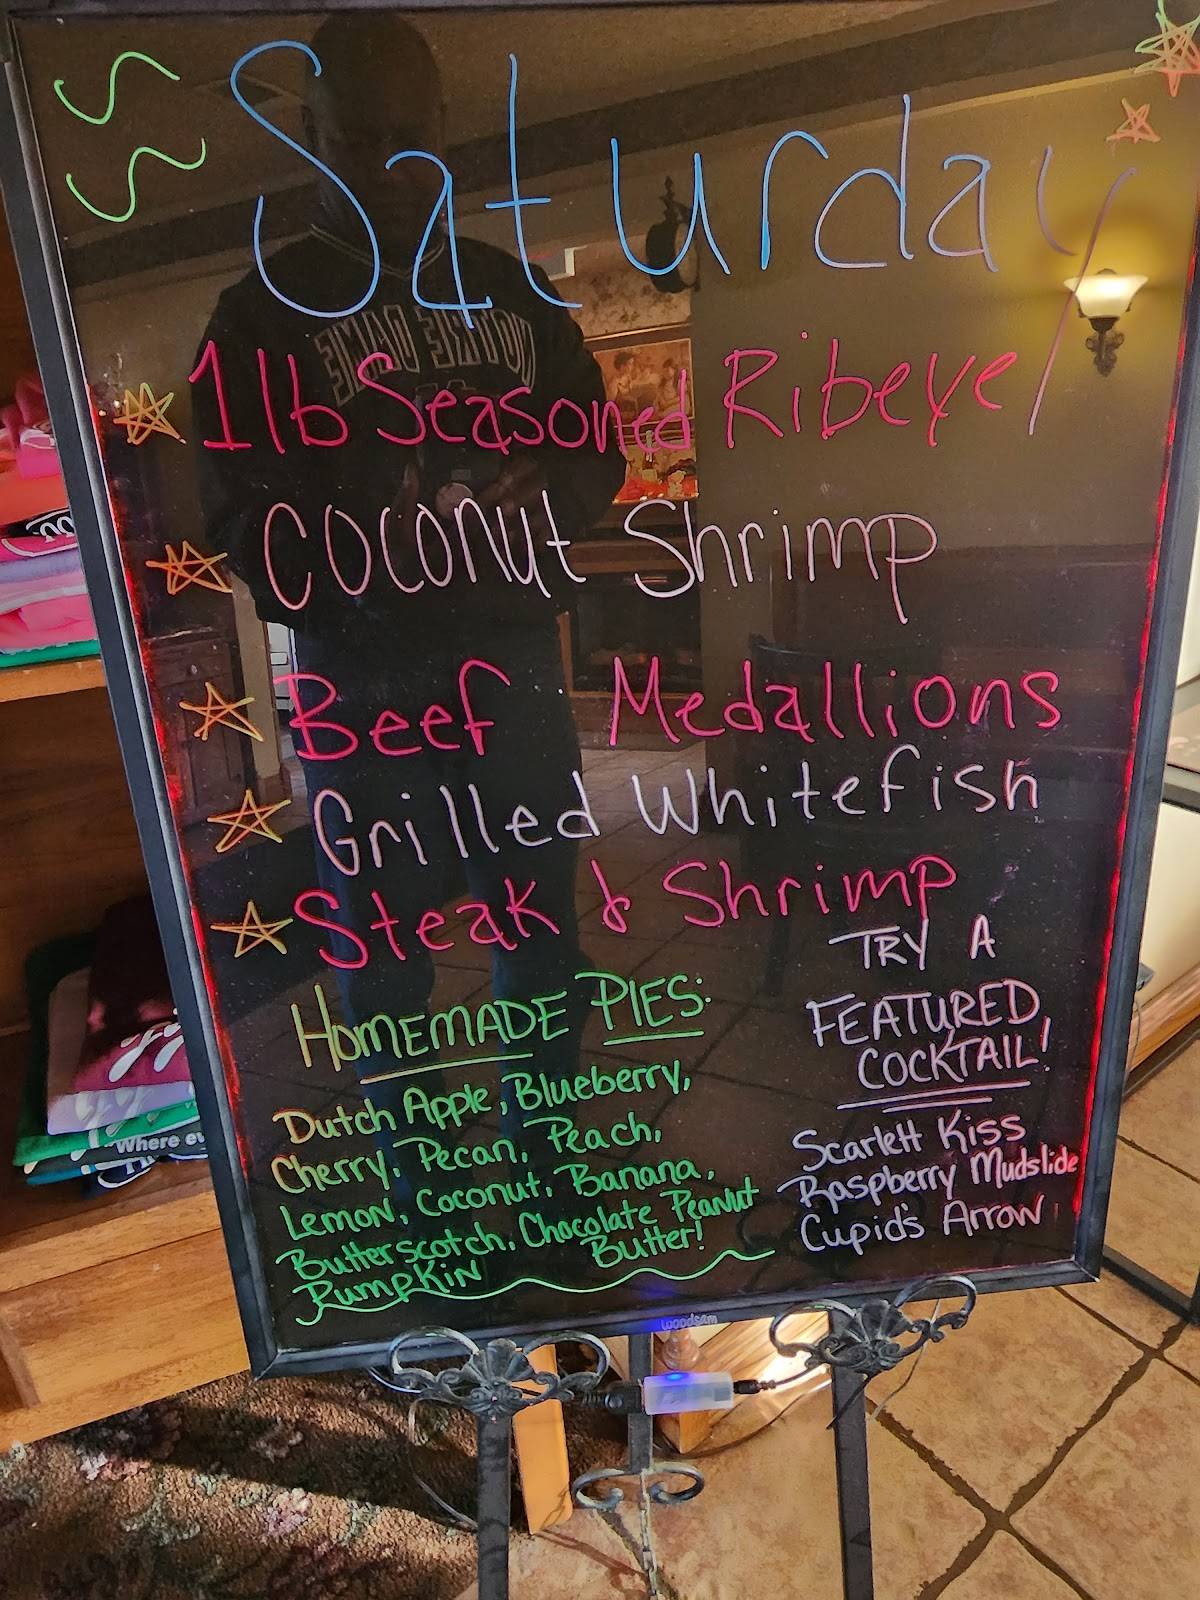 Saturday
1lb Seasoned Ribeye
Coconut Shrimp
Beef Medallions
Grilled Whitefish
Steak & Shrimp
HOMEMADE PIES:
Dutch Apple, Blueberry,
Cherry, Pecan, Peach,
Lemon, Coconut, Banana,
Butterscotch, Chocolate Peanut
Butter!
PUMPKIN
TRY A
FEATURED
COCKTAIL!
Scarlett Kiss
Raspberry Mudslide
Cupid's Arrow
woodsam
NOTRE DAME
Where ev